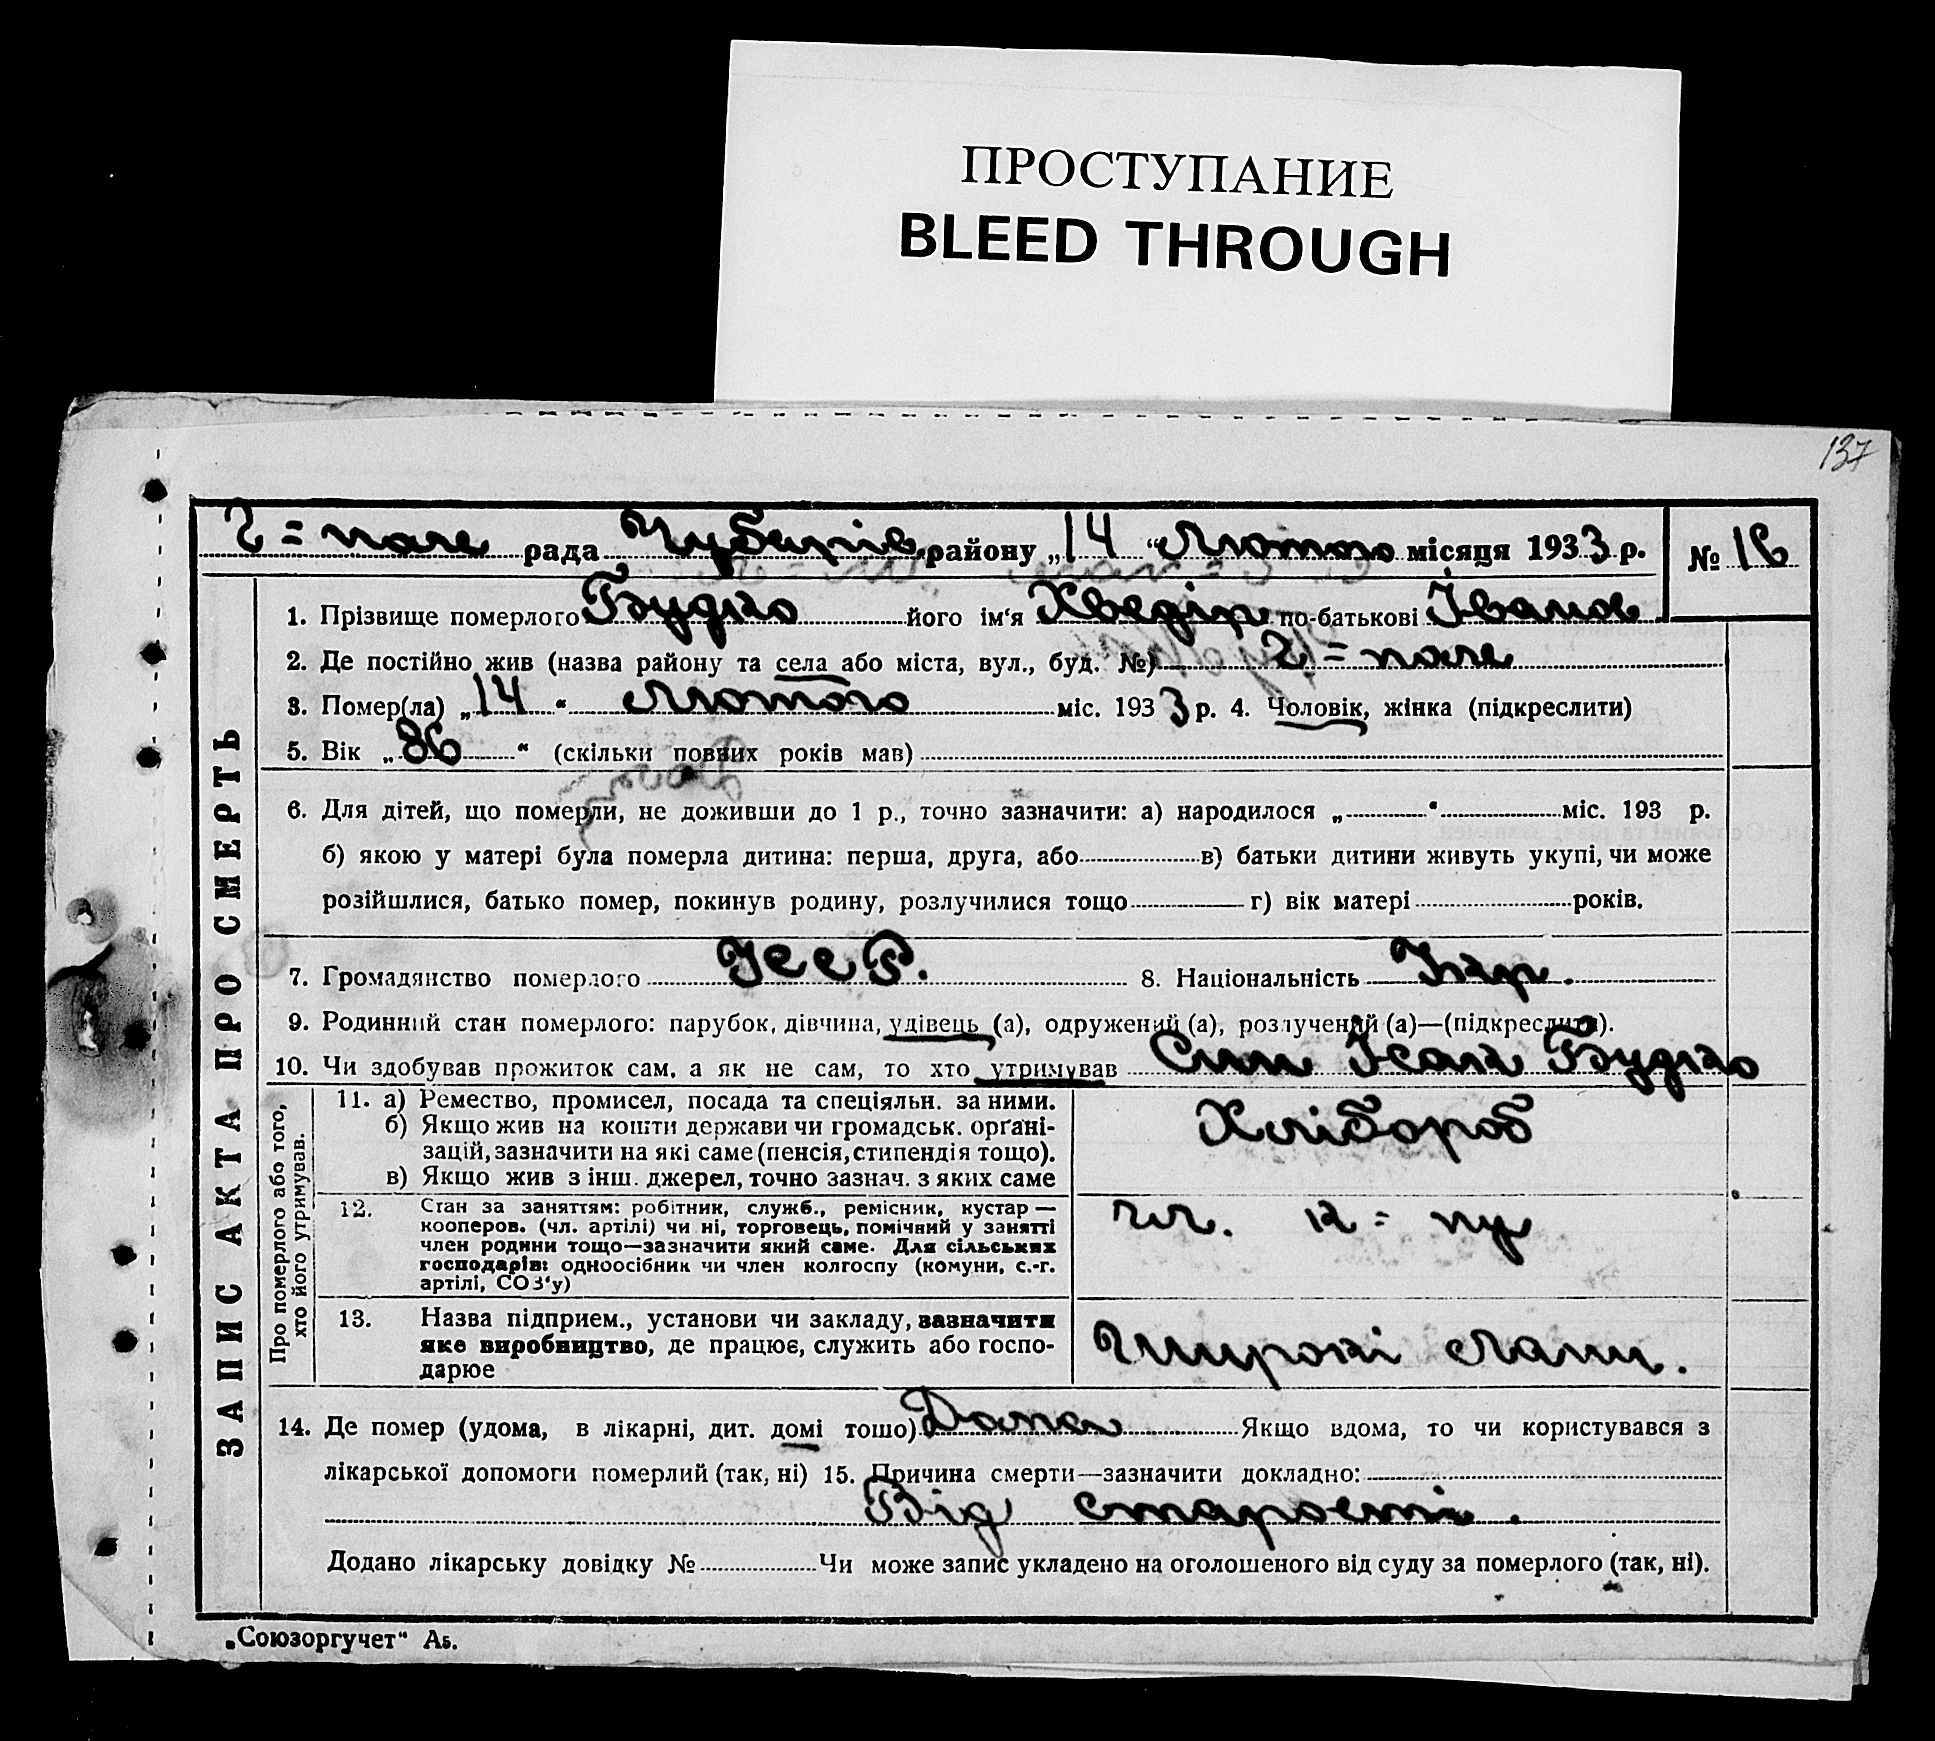 ПРОСТУПАНИЕ
BLEED THROUGH
137
Г=поле рада Чубарів. району „14 “ Лютого місяця 1933 р. № 16
ЗАПИС АКТА ПРО СМЕРТЬ
1. Прізвище померлого Будко його ім'я Хведір по-батькові Іванов
2. Де постійно жив (назва району та села або міста, вул., буд. №) Г=поле
3. Помер(ла) „14 “ Лютого міс. 1933 р. 4. Чоловік, жінка (підкреслити)
5. Вік „86 “ (скільки повних років мав)
6. Для дітей, що померли, не доживши до 1 р., точно зазначити: а) народилося „ “ міс. 193 р.
б) якою у матері була померла дитина: перша, друга, або в) батьки дитини живуть укупі, чи може
розійшлися, батько помер, покинув родину, розлучилися тощо г) вік матері років.
7. Громадянство померлого УССР. 8. Національність Укр.
9. Родинний стан померлого: парубок, дівчина, удівець (а), одружений (а), розлучений (а)—(підкреслити).
10. Чи здобував прожиток сам, а як не сам, то хто утримував Син Ісак Будко
Про померлого або того,
хто його утримував.
11. а) Ремество, промисел, посада та спеціяльн. за ними.
б) Якщо жив на кошти держави чи громадськ. орґані-
зацій, зазначити на які саме (пенсія, стипендія тощо).
в) Якщо жив з інш. джерел, точно зазнач. з яких саме
Хлібороб
12. Стан за заняттям: робітник, служб., ремісник, кустар—
кооперов. (чл. артілі) чи ні, торговець, помічний у занятті
член родини тощо—зазначити який саме. Для сільських
господарів: одноосібник чи член колгоспу (комуни, с.-г.
артілі, СОЗ'у)
чл. к=пу
13. Назва підприєм., установи чи закладу, зазначити
яке виробництво, де працює, служить або госпо-
дарює
Широкі Лани.
14. Де помер (удома, в лікарні, дит. домі тошо) Дома Якщо вдома, то чи користувався з
лікарської допомоги померлий (так, ні) 15. Причина смерти—зазначити докладно:
Від старості.
Додано лікарську довідку № Чи може запис укладено на оголошеного від суду за померлого (так, ні).
„Союзоргучет“ Аб.